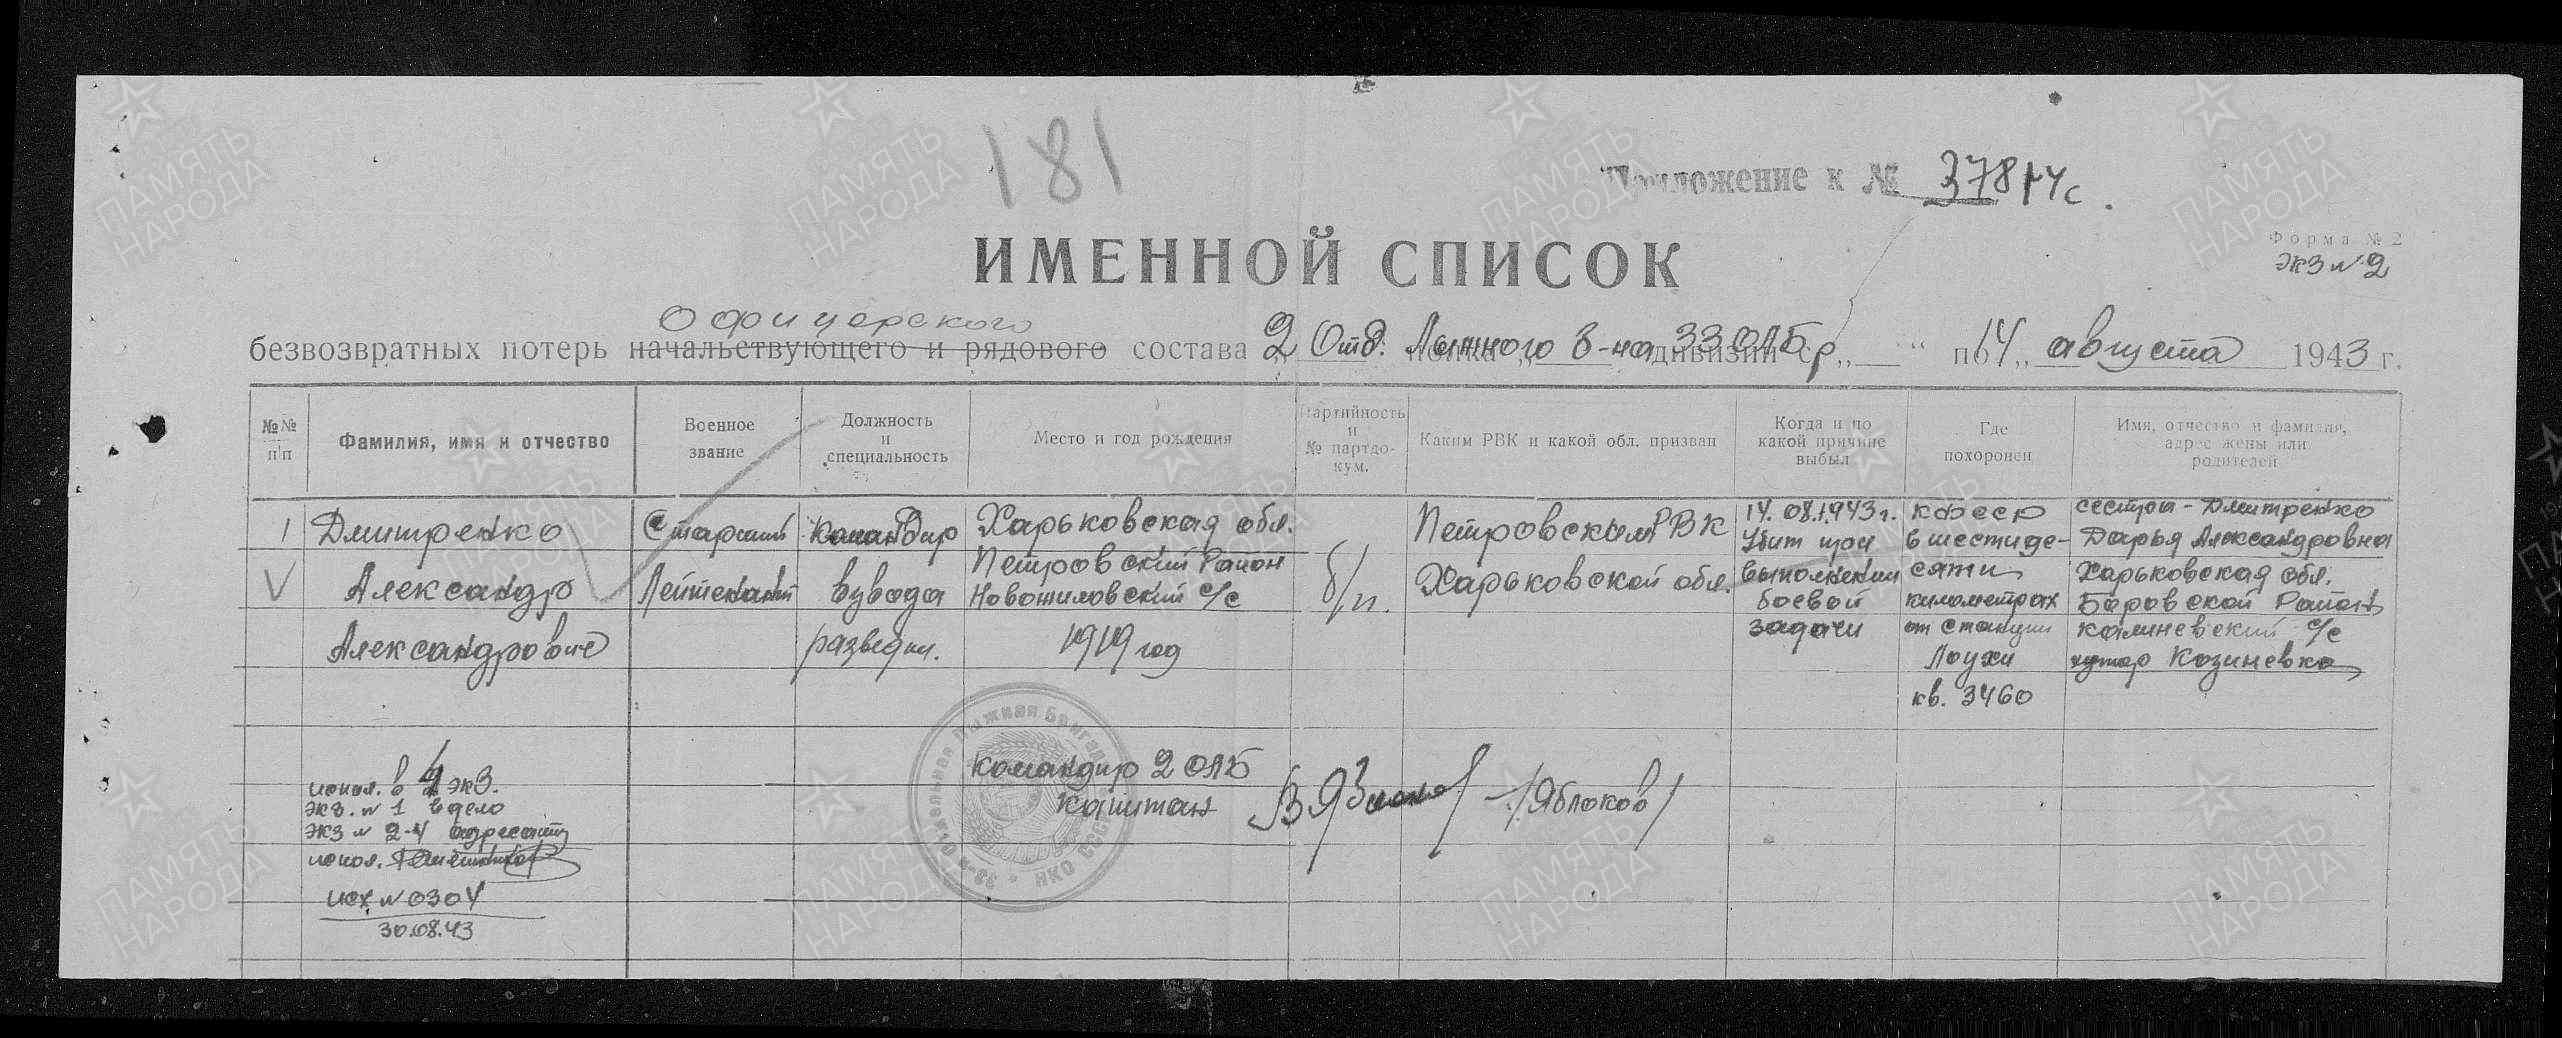 181
Приложение к № 378 14с.
ИМЕННОЙ СПИСОК
Форма № 2
экз № 2
офицерского
безвозвратных потерь начальствующего и рядового состава 2 Отд. Лыжного б-на 33 ОЛБр по 14 августа 1943 г.
№№ п/п
Фамилия, имя и отчество
Военное звание
Должность и специальность
Место и год рождения
Партийность и № партдокум.
Каким РВК и какой обл. призван
Когда и по какой причине выбыл
Где похоронен
Имя, отчество и фамилия, адрес жены или родителей
1
V
Дмитренко
Александр
Александрович
Старший
Лейтенант
Командир
взвода
разведки.
Харьковская обл.
Петровский Район
Новошиловский с/с
1919 год
б/п.
Петровским РВК
Харьковской обл.
14.08.1943 г.
Убит при
выполнении
боевой
задачи
КФССР
в шестиде-
сяти
километрах
от станции
Лоухи
кв. 3460
сестра - Дмитренко
Дарья Александровна
Харьковская обл.
Баровской Район
Калиневский с/с
хутор Козиневка
Командир 2 ОЛБ
Капитан /Яблоков/
33-я Отдельная Лыжная Бригада НКО СССР
испол. в 4 экз.
экз. № 1 в дело
экз № 2-4 адресату
испол.
исх № 0304
30.08.43
ПАМЯТЬ
НАРОДА